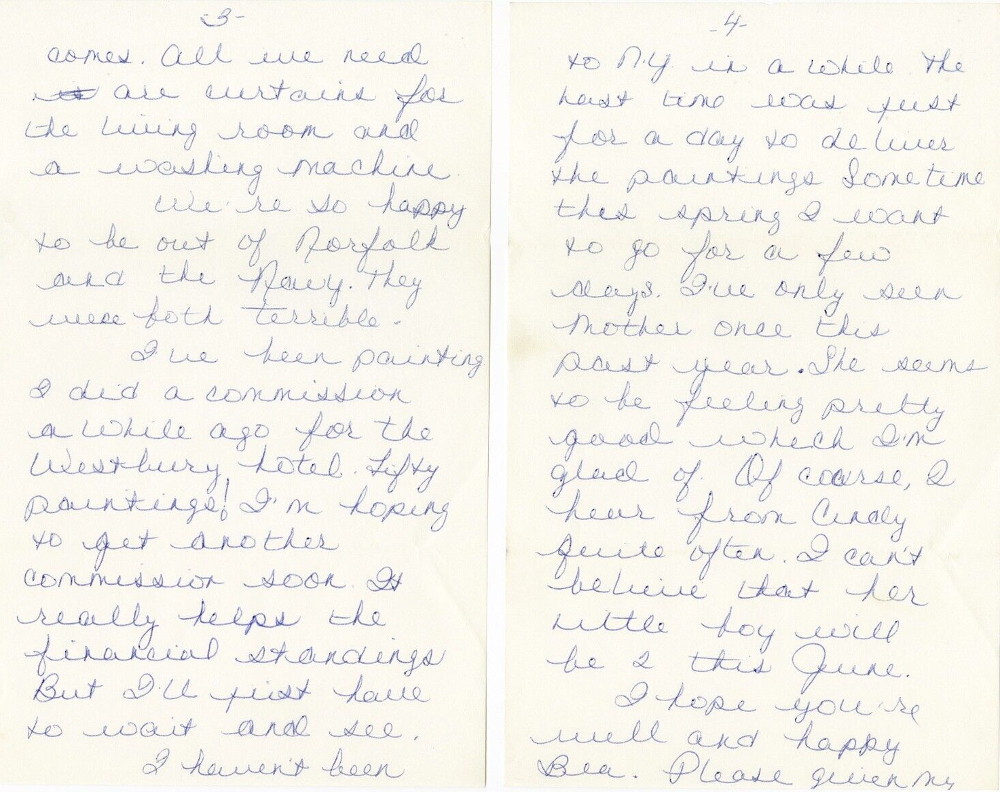 -3-
comes. All we need
are curtains for
the living room and
a washing machine.
We're so happy
to be out of Norfolk
and the Navy. They
were both terrible.
I've been painting
I did a commission
a while ago for the
Westbury hotel. Fifty
paintings! I'm hoping
to get another
commission soon. It
really helps the
financial standings
But I'll just have
to wait and see.
I haven't been
-4-
to N.Y. in a while. The
last time was just
for a day to deliver
the paintings Sometime
this spring I want
to go for a few
days. I've only seen
Mother once this
past year. She seems
to be feeling pretty
good which I'm
glad of. Of course, I
hear from Cindy
quite often. I can't
believe that her
little boy will
be 2 this June.
I hope you're
well and happy
Bea. Please given my